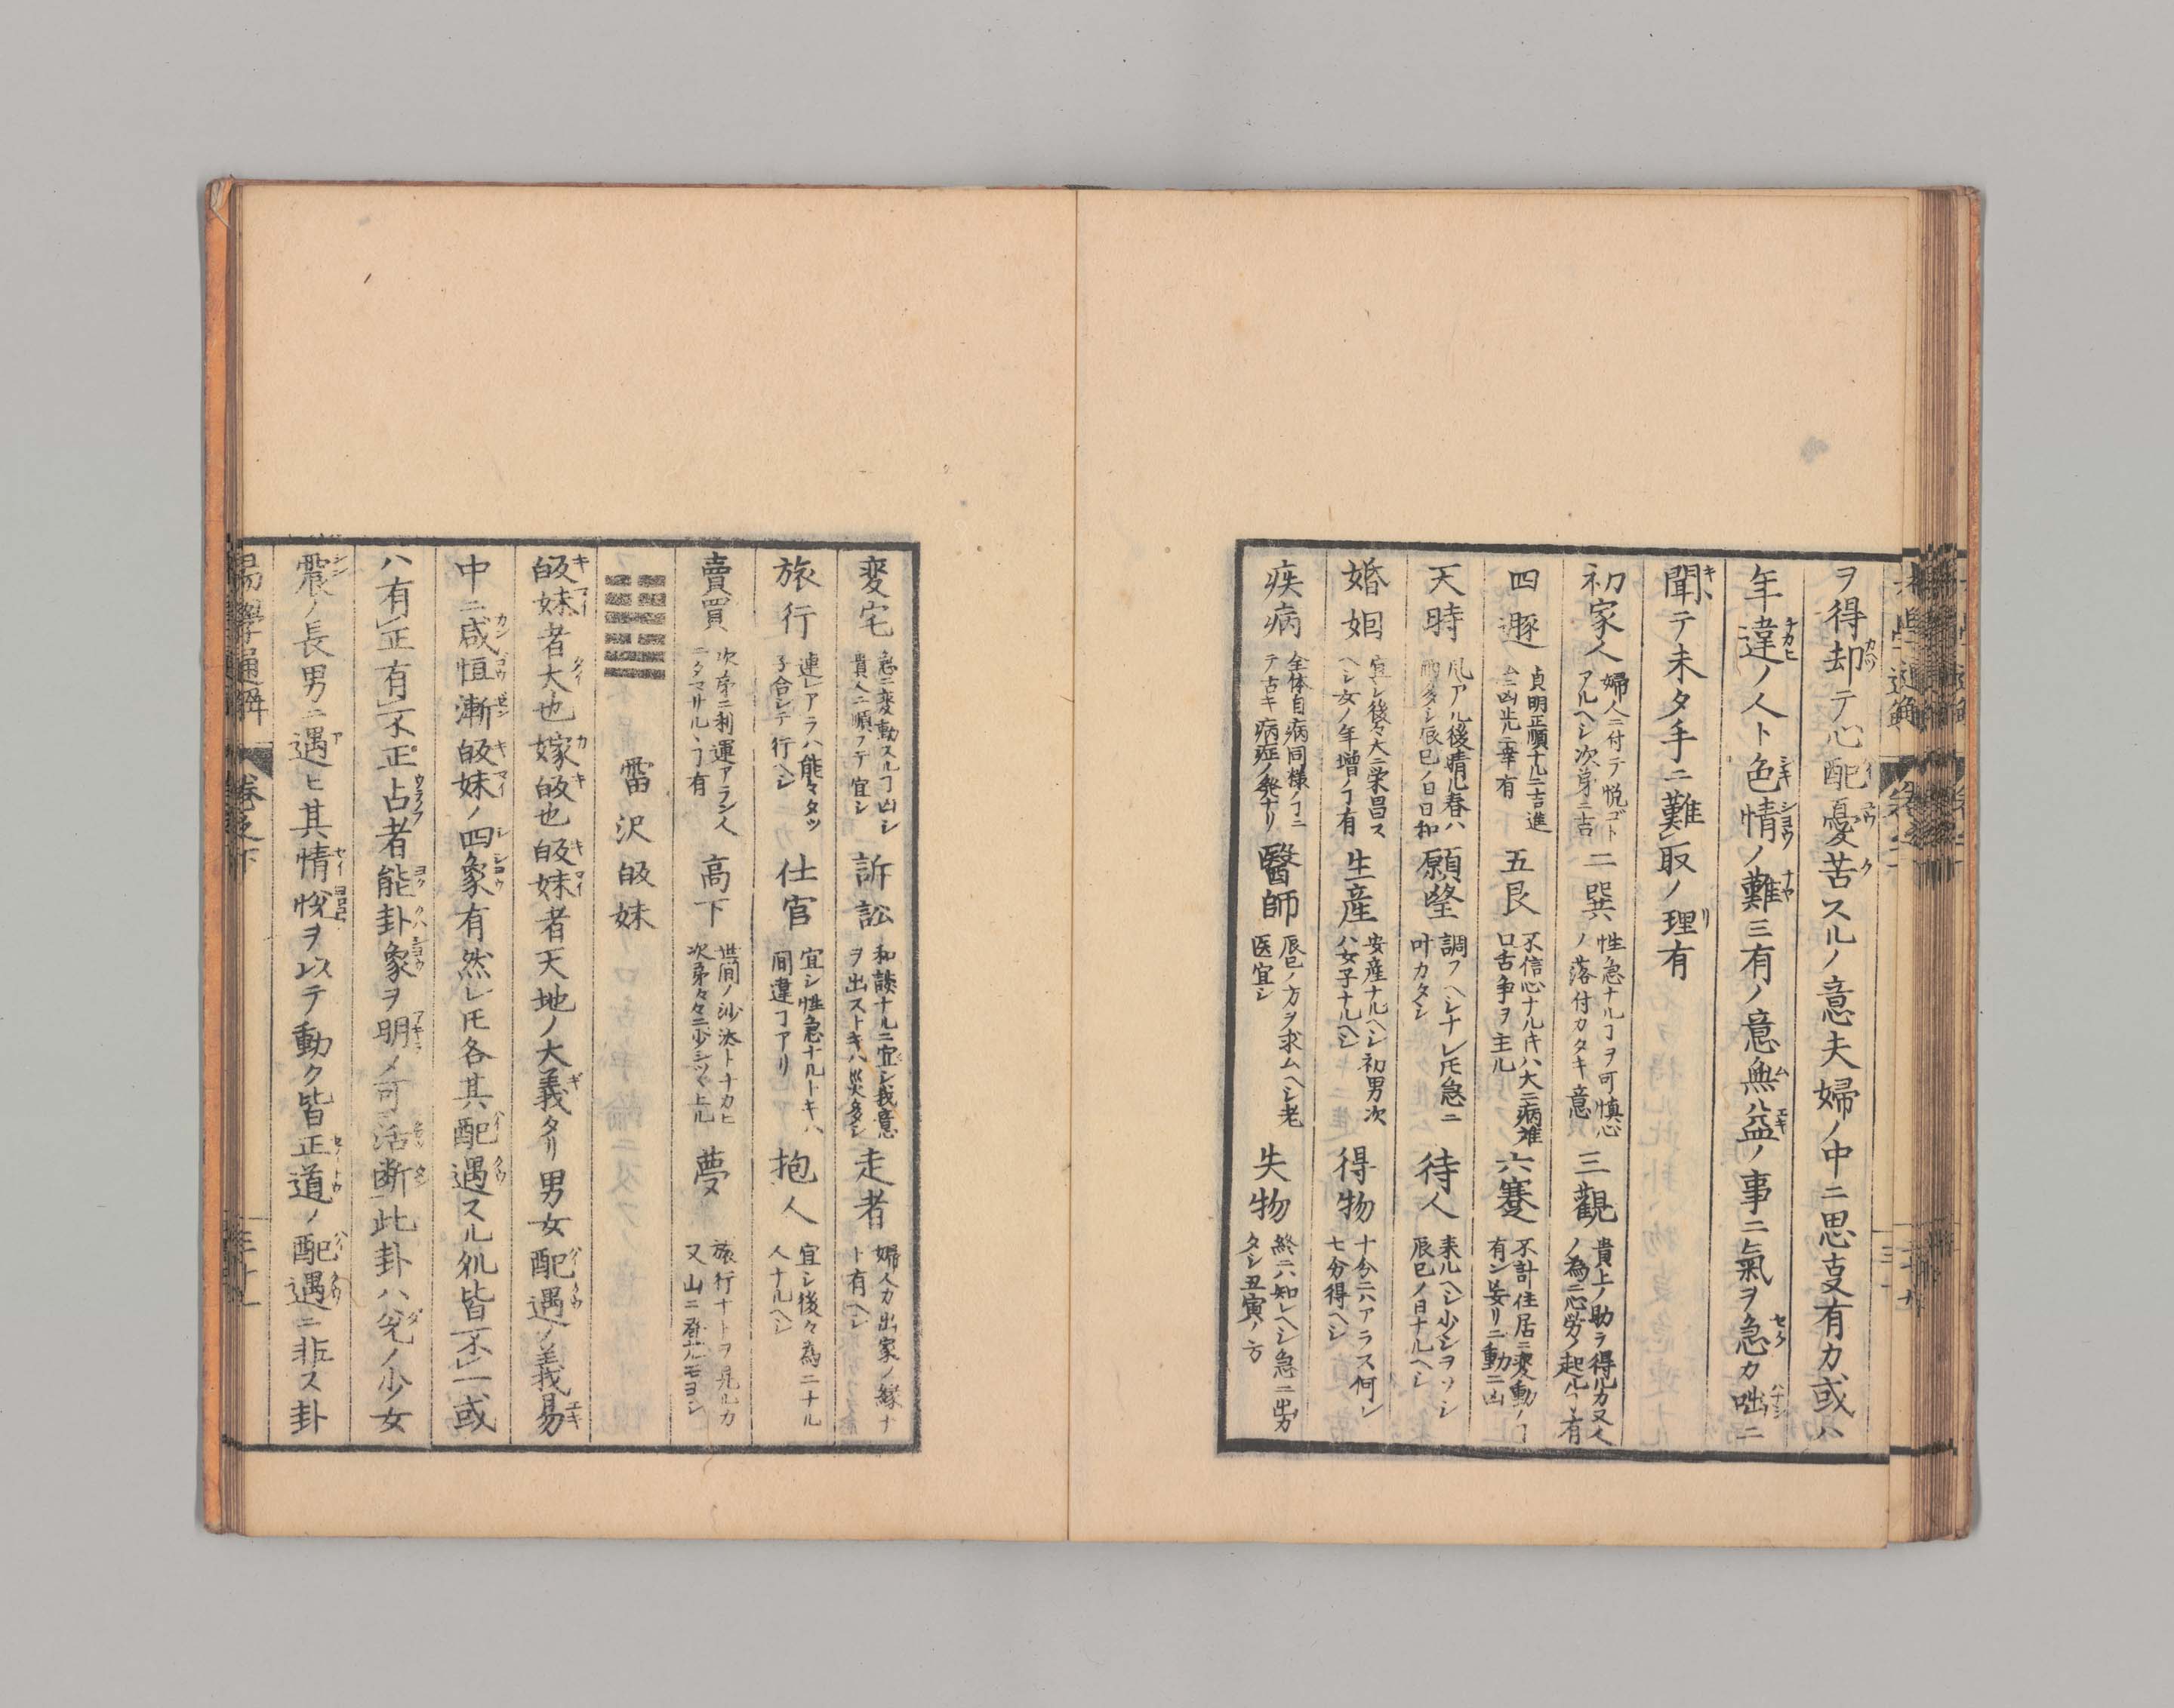 ヲ得却テ心配憂苦スルノ意夫婦ノ中ニ思支有カ或ハ
年違ノ人ト色情ノ難三有ノ意無益ノ事ニ氣ヲ急カ咄ニ
聞テ未タ手ニ難取ノ理有
初家人 婦人ニ付テ悦ゴト
アルヘシ次第ニ吉
二巽 性急ナルヿヲ可慎心
ノ落付カタキ意
三觀 貴上ノ助ヲ得ルカ又人
ノ為ニ心労ノ起ルヿ有
四遯 貞明正順ナルニ吉進
ムニ凶此ニ幸有
五艮 不信心ナル𪜈ハ大ニ病難
口舌争ヲ主ル
六蹇 不計住居ニ変動ノヿ
有ン妄リニ動ニ凶
天時 風アル後晴ル春ハ
雨タシ辰巳ノ日日和
願望 調フヘシナレ𪜈急ニ
叶カタシ
待人 来ルヘシ少シヲソシ
辰巳ノ日ナルヘシ
婚姻 宜シ後々大ニ栄昌ス
ヘシ女ノ年増ノヿ有
生産 安産ナルヘシ初男次
ハ女子ナルヘシ
得物 十分ニハアラス何シ
七分得ヘシ
疾病 全体自病同様ノヿニ
テ古キ病症ノ発ナリ
醫師 辰巳ノ方ヲ求ムヘシ老
医宜シ
失物 終ニ六知レヘシ急ニ出カ
タシ丑寅ノ方
変宅 急ニ変動スルヿ凶シ
貴人ニ順フテ宜シ
訴訟 和談ナルニ宜シ我意
ヲ出ストキハ災多シ
走者 婦人カ出家ノ縁ナ
ト有ヘシ
旅行 連レアラハ能々タツ
子合シテ行ヘシ
仕官 宜シ性急ナルトキハ
間違ヿアリ
抱人 宜シ後々為ニナル
人ナルヘシ
賣買 次第ニ利運アラン人
ニタマサルヽヿ有
高下 世間ノ沙汰トナカヒ
次第々々ニ少シツヽ上ル
夢 旅行ナトヲ見ルカ
又山ニ登ルモヨシ
雷沢皈妹
皈妹者大也嫁皈也皈妹者天地ノ大義タリ男女配遇ノ義易
中ニ咸恒漸皈妹ノ四象有然レ𪜈各其配遇スル処皆不一或
ハ有正有不正占者能卦象ヲ明メ可活断此卦ハ兌ノ少女
震ノ長男ニ遇ヒ其情悅ヲ以テ動ク皆正道ノ配遇ニ非ス卦
易學通解 卷之下